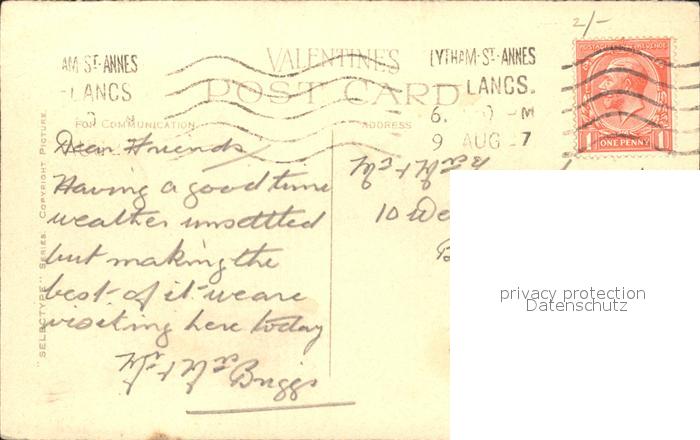 2/-
AM-ST-ANNES
-LANCS
LYTHAM-ST-ANNES
LANCS.
9 AUG 7
POSTAGE REVENUE
1 ONE PENNY 1
VALENTINE'S
POST CARD
FOR COMMUNICATION.
ADDRESS
"SELECTYPE" SERIES. COPYRIGHT PICTURE.
Dear Friends
Having a good time
weather unsettled
but making the
best of it we are
visiting here today
Briggs
10
privacy protection
Datenschutz